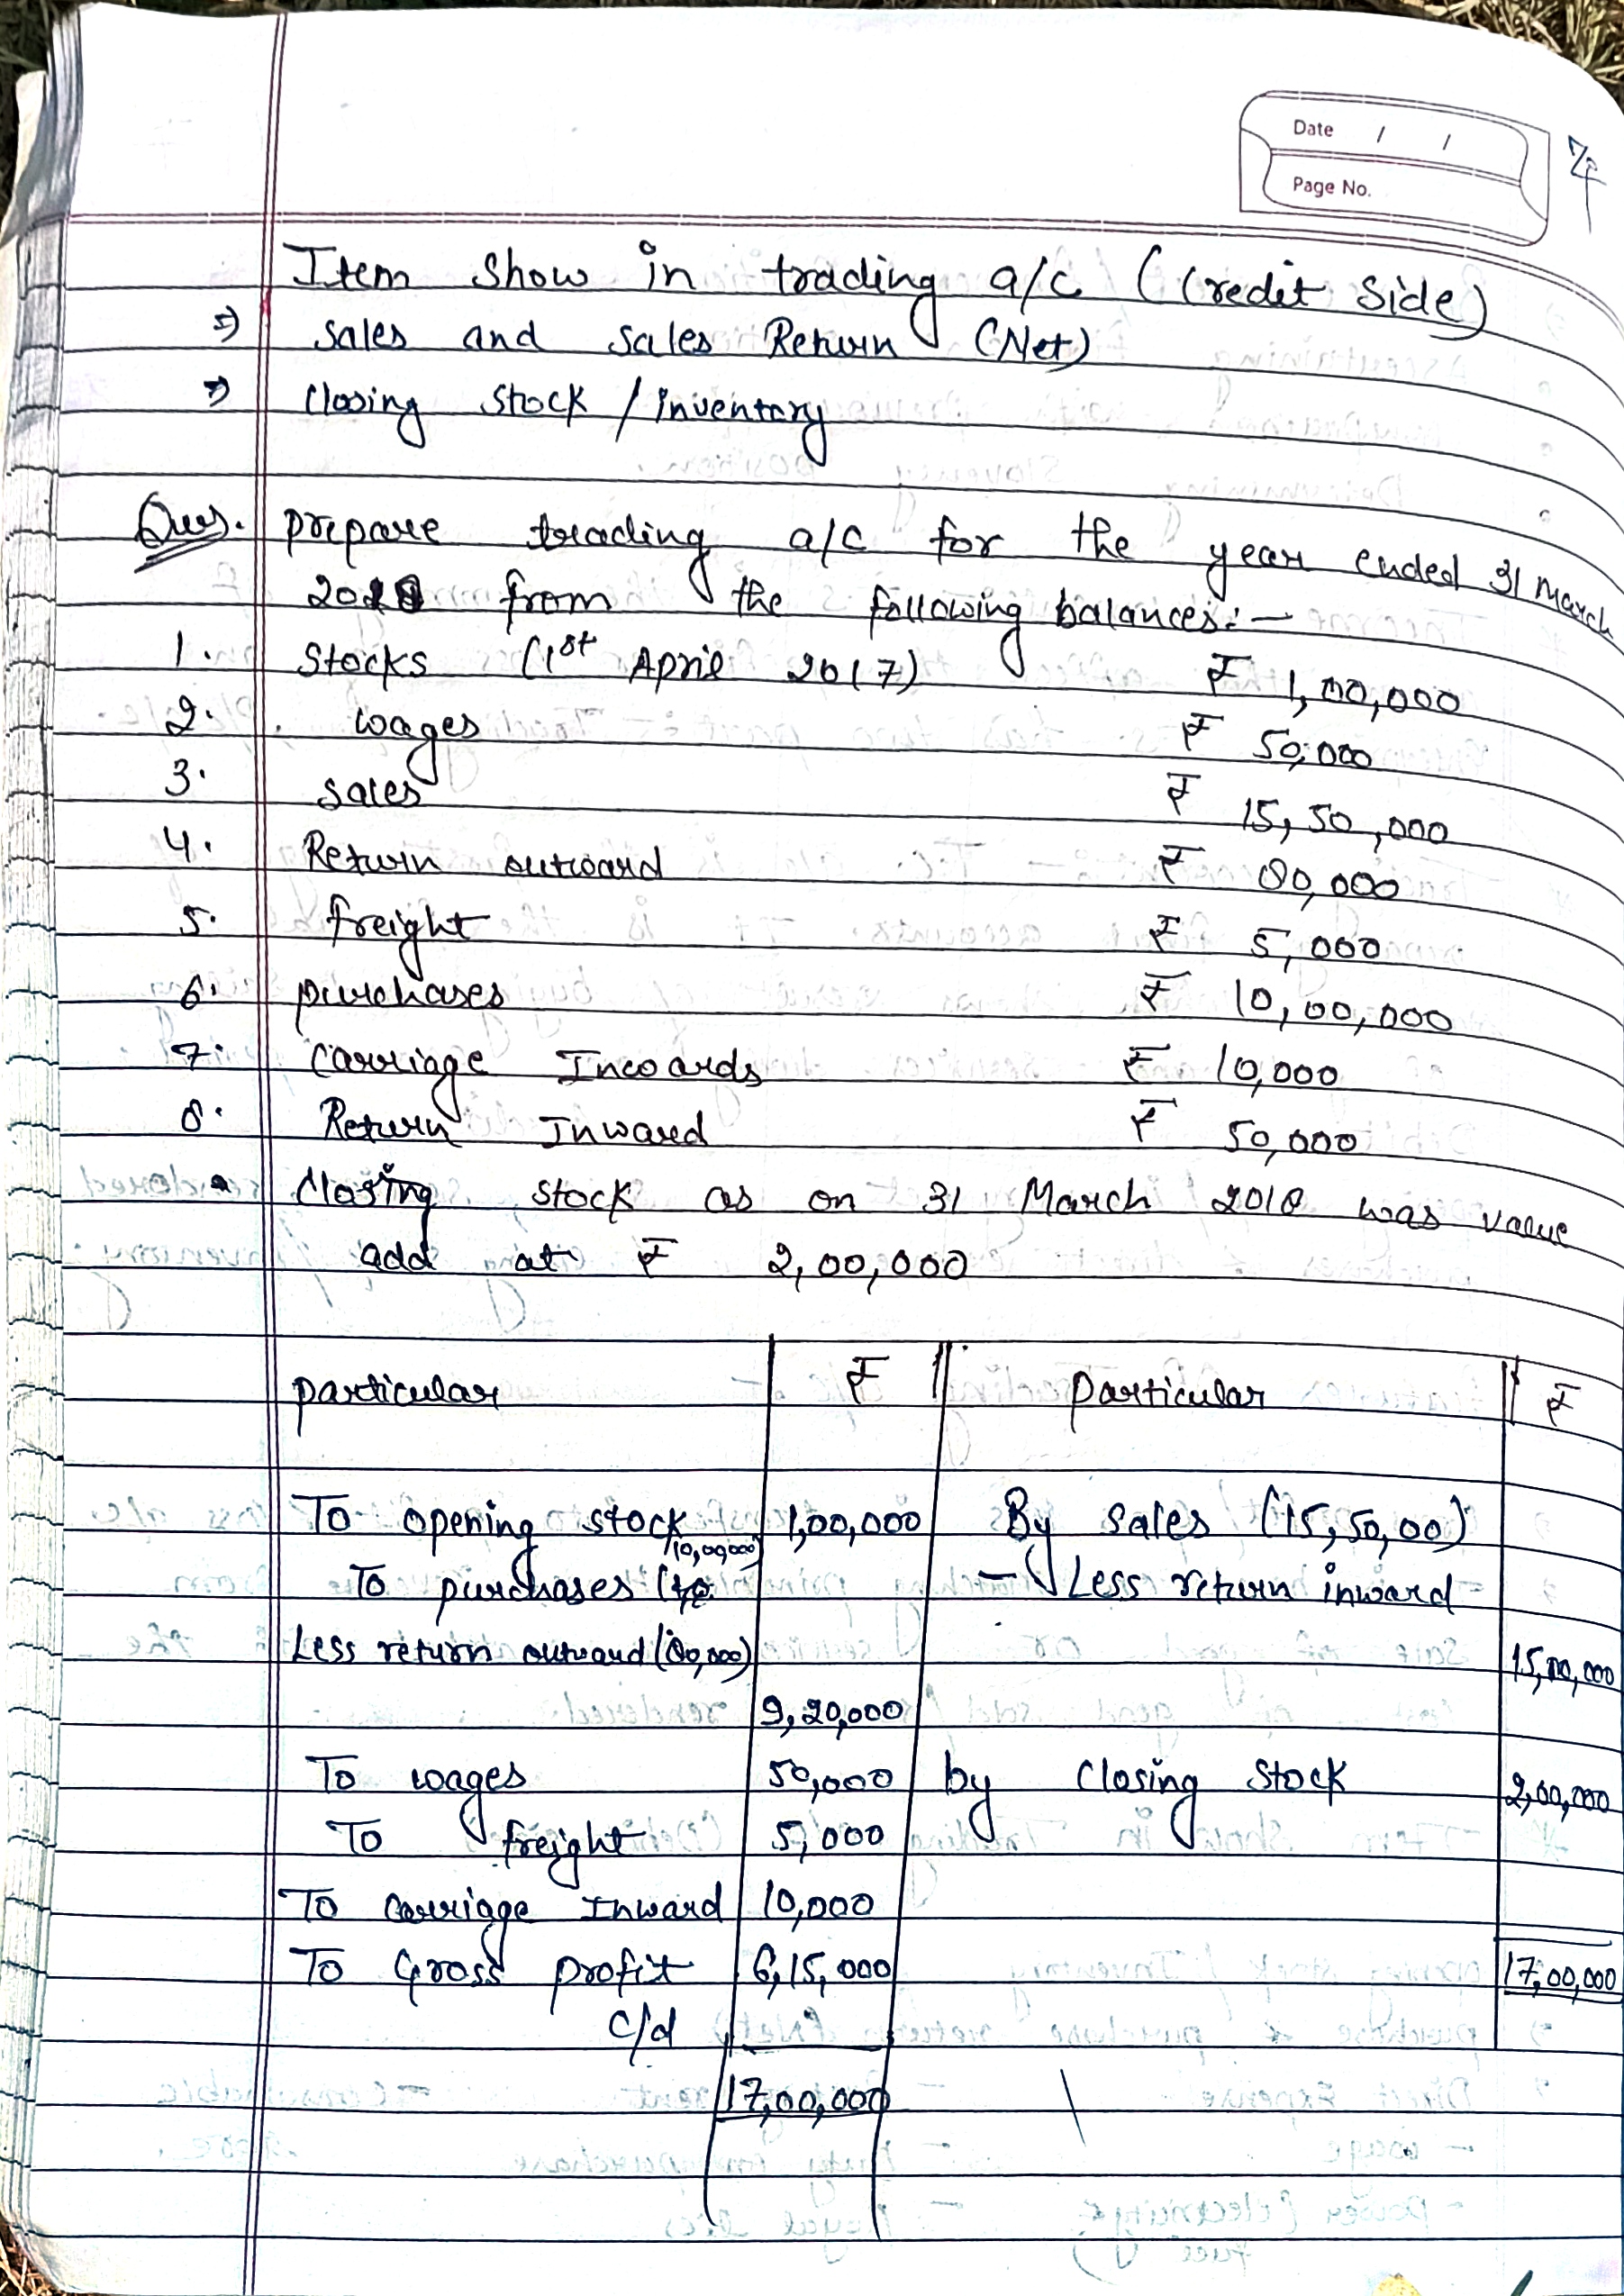 Date / /
Page No.
Item Show in trading a/c (Credit Side)
⇒ Sales and Sales Return (Net)
⇒ Closing Stock / Inventory
Ques. prepare trading a/c for the year ended 31 March
2018 from the following balances:-
1. Stocks (1st April 2017) ₹ 1,00,000
2. wages ₹ 50,000
3. sales ₹ 15,50,000
4. Return outward ₹ 80,000
5. freight ₹ 5,000
6. purchases ₹ 10,00,000
7. Carriage Inwards ₹ 10,000
8. Return Inward ₹ 50,000
Closing stock as on 31 March 2018 was value
add at ₹ 2,00,000
particular ₹ particular ₹
To opening stock 1,00,000 By Sales (15,50,00)
To purchases (10,00,000) - Less return inward
Less return outward (80,000) 15,00,000
9,20,000
To wages 50,000 by Closing Stock 2,00,000
To freight 5,000
To Carriage Inward 10,000
To Gross profit 6,15,000 17,00,000
c/d
17,00,000